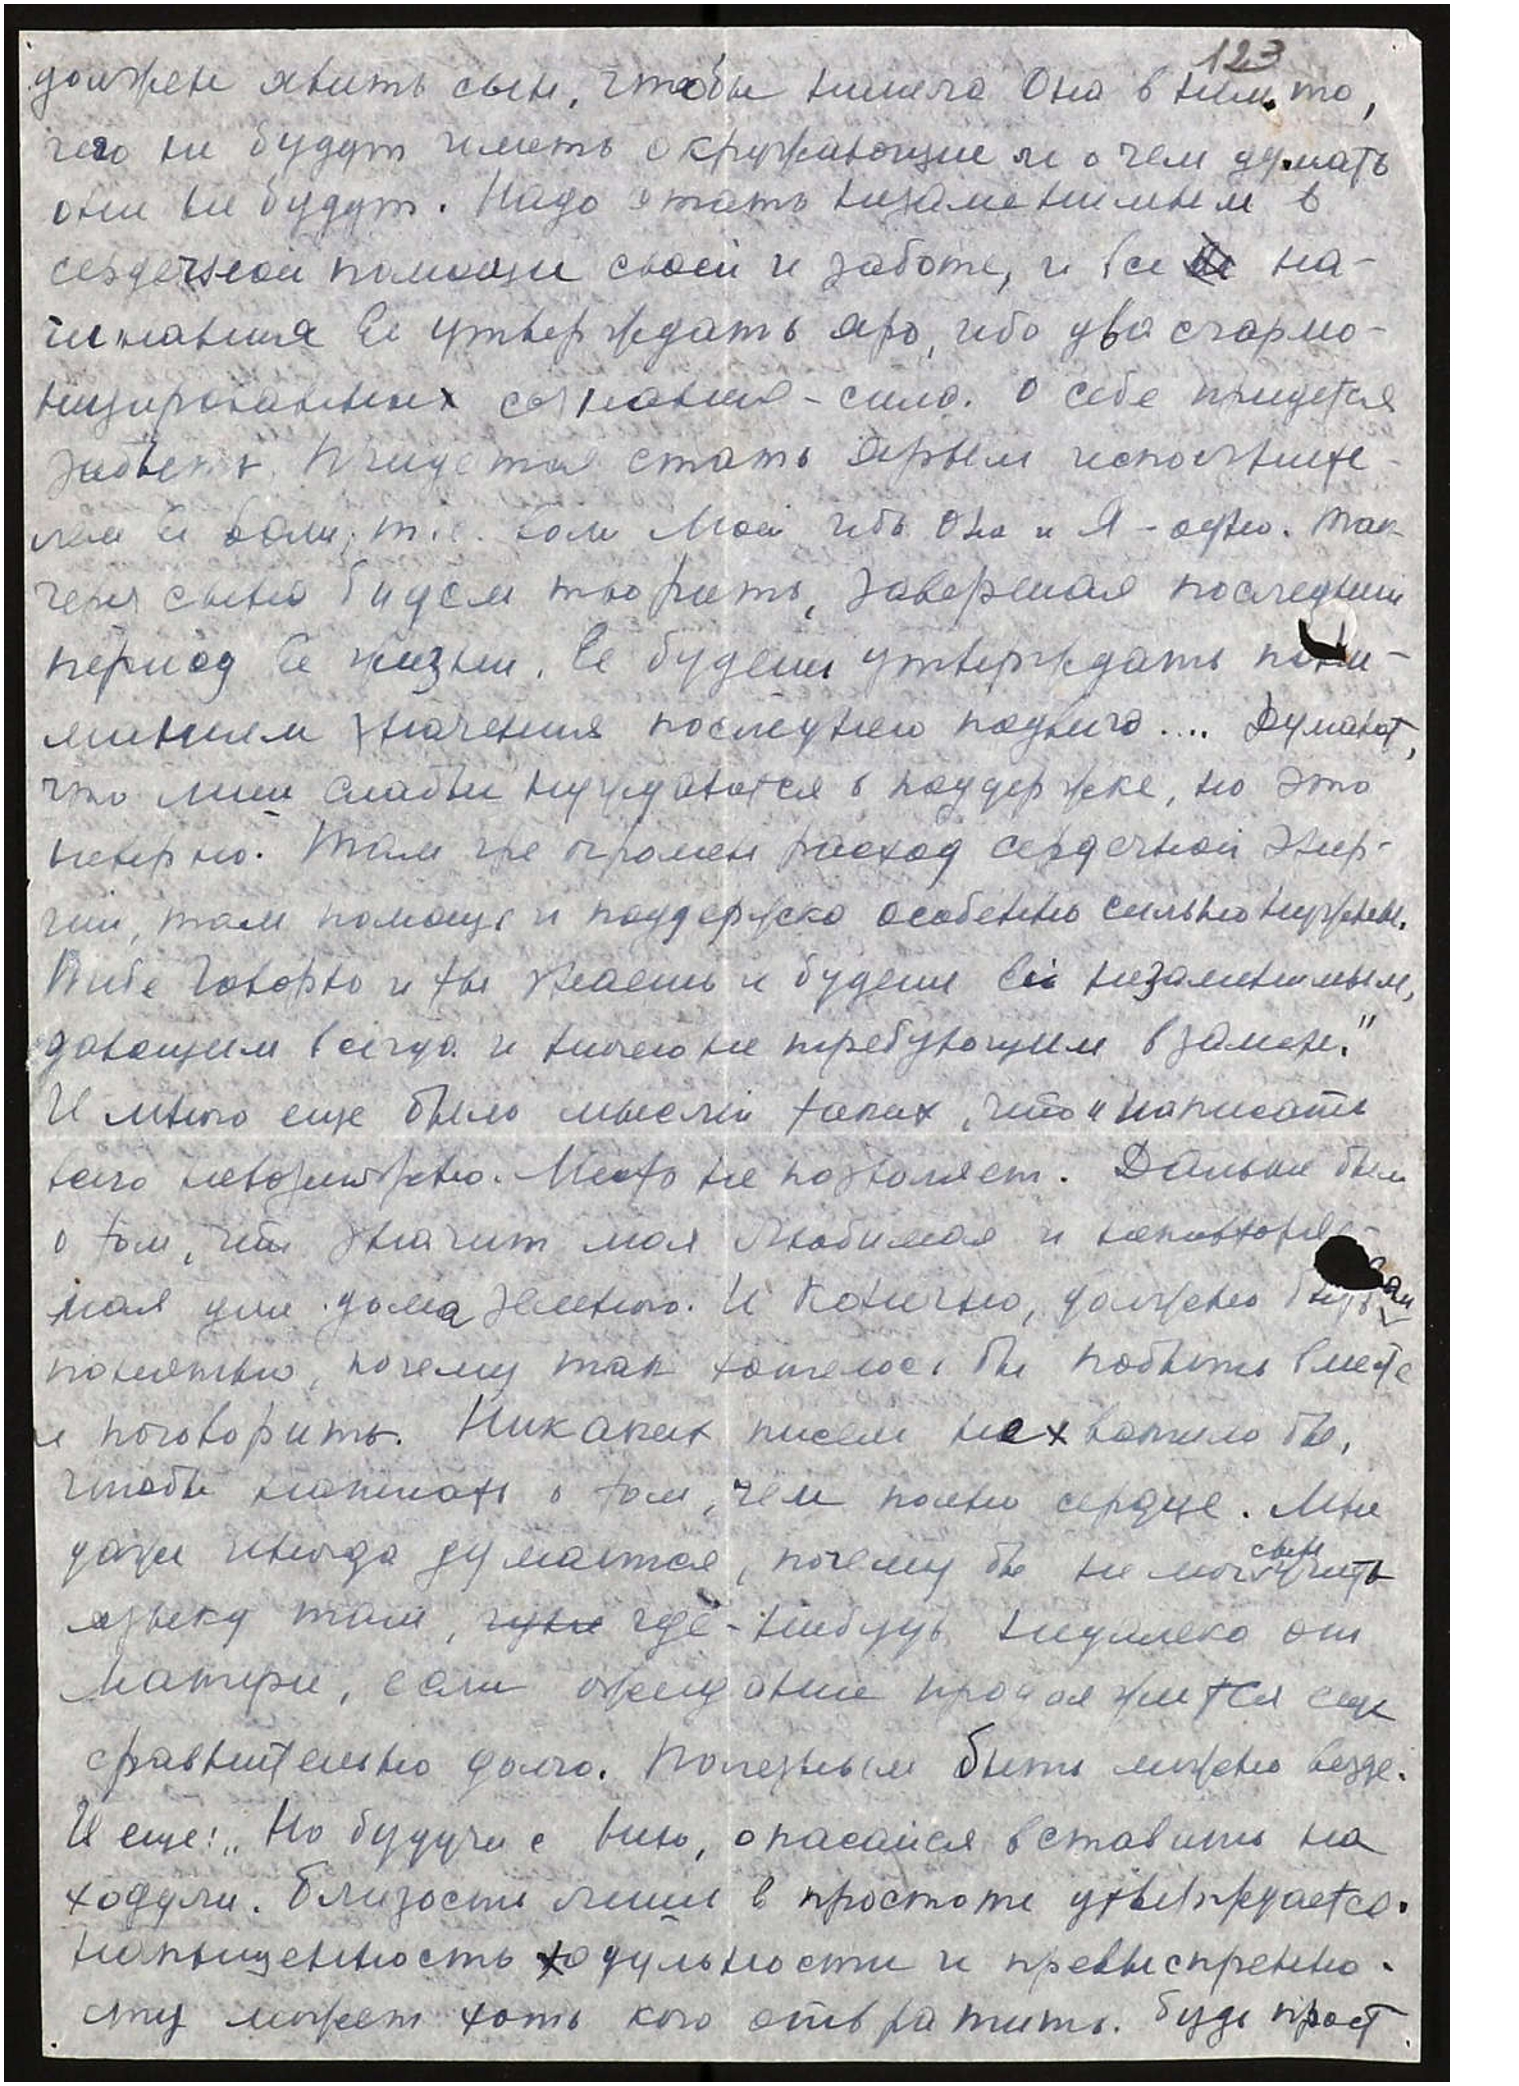 123
должен явить сын, чтобы нашла Она в нем то,
чего не будут иметь окружающие и о чем думать
они не будут. Надо стать незаменимым в
сердечной помощи своей и заботе, и все на-
чинания Ее утверждать яро, ибо два сгармо-
низированных сознания – сила. О себе придется
забыть. Придется стать ярым исполните-
лем Ее воли, т.е. воли Моей ибо Она и Я – одно. Так
через сына будем творить, завершая последний
период Ее жизни. Ее будешь утверждать пони-
манием значения последнего подвига.... Думают,
что лишь слабые нуждаются в поддержке, но это
неверно. Там где огромен расход сердечной энер-
гии, там помощь и поддержка особенно сильно нужны.
Тебе говорю и ты знаешь и будешь Ей незаменимым,
дающим всегда и ничего не требующим взамен."
И много еще было мыслей таких, что и написать
всего невозможно. Место не позволяет. Дальше было
о том, что значит моя Любимая и неповтори-
мая для дома земного. И конечно, должно быть Вам
понятно, почему так хотелось бы побыть вместе
и поговорить. Никаких писем не хватило бы,
чтобы написать о том, чем полно сердце. Мне
даже иногда думается, почему бы не мог сын учить
языку там, где-нибудь недалеко от
Матери, если ожидание продолжится еще
сравнительно долго. Полезным быть можно везде.
И еще: „Но будучи с Нею, опасайся вставать на
ходули. Близость лишь в простоте утверждается.
Напыщенность ходульности и превыспренно-
сти может хоть кого отвратить. Будь прост